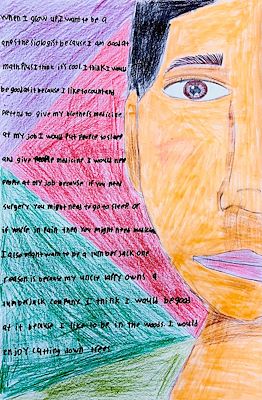 When I grow up I want to be a
anesthesiologist because I am good at
math. Plus I think it's cool. I think I would
be good at it because I like to count and
pretend to give my brothers medicine.
at my job I would put people to sleep
and give people medicine. I would need
people at my job because if you need
surgery you might need to go to sleep or
if you're in pain then you might need medicine
I also might want to be a lumberjack one
reason is because my uncle Larry owns a
lumberjack company. I think I would be good
at it because I like to be in the woods. I would
enjoy cutting down trees